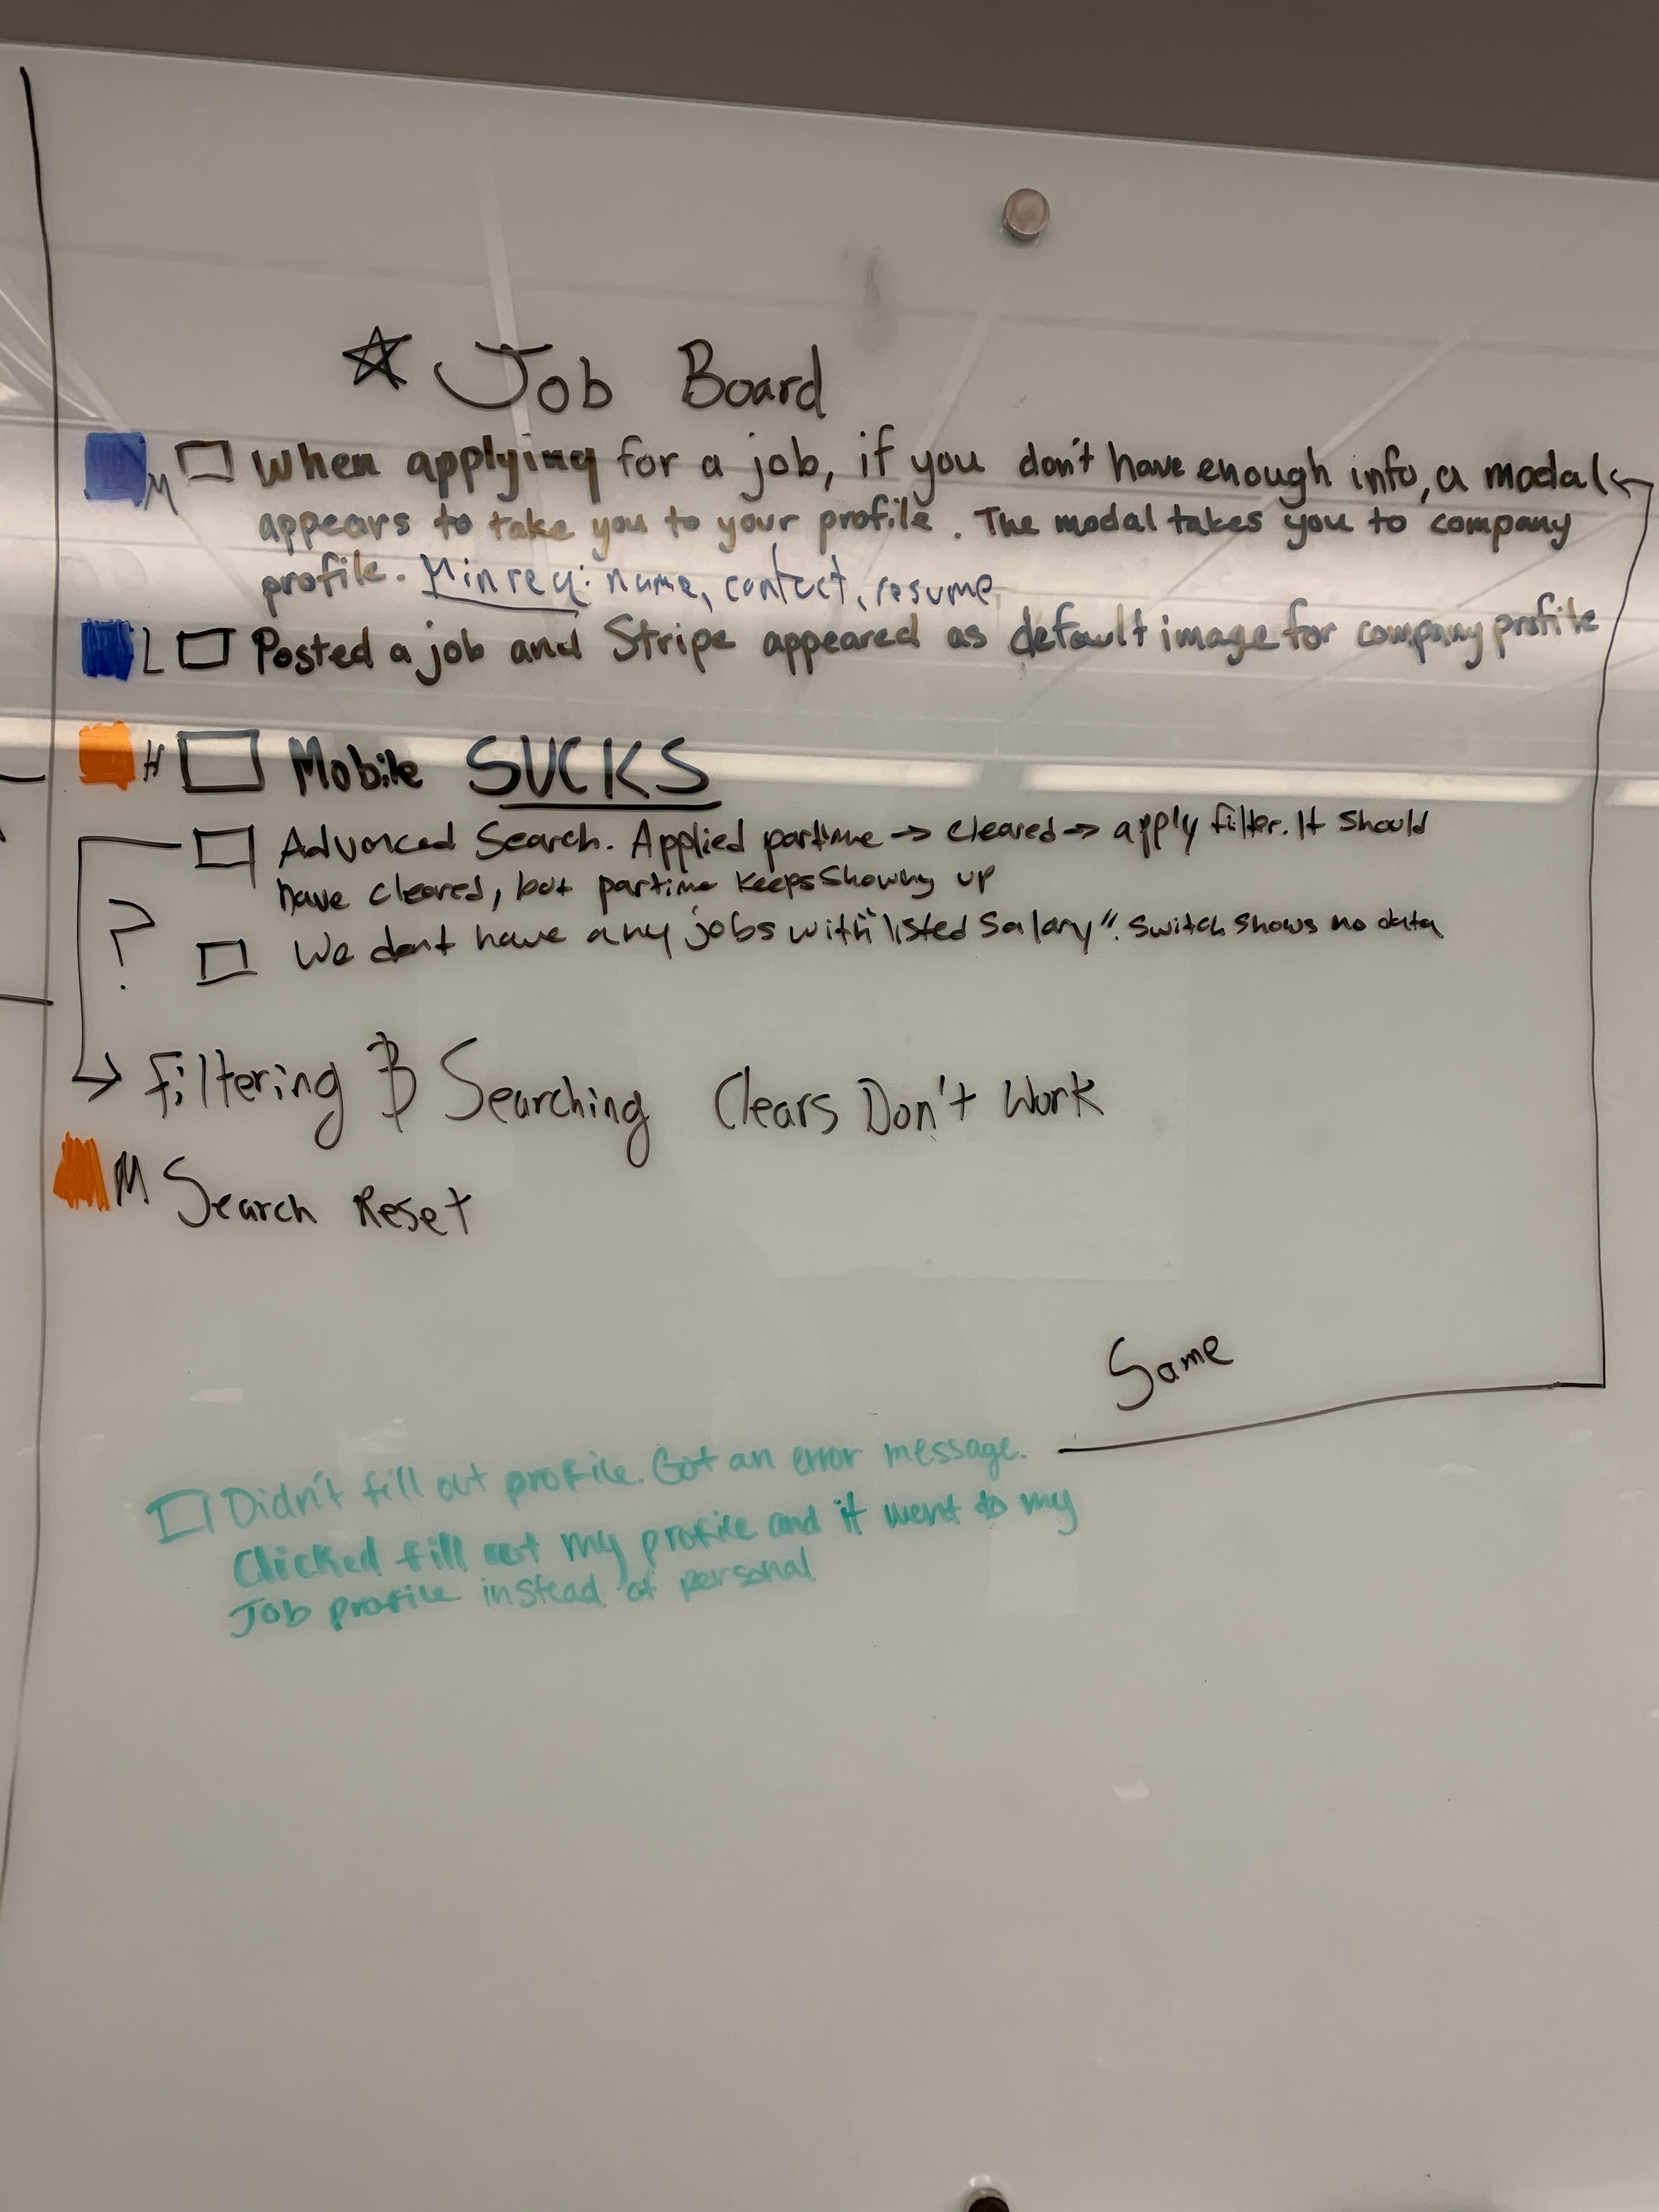 ☆ Job Board
M □ When applying for a job, if you don't have enough info, a modal
appears to take you to your profile. The modal takes you to company
profile. Min req: name, contact, resume
L □ Posted a job and Stripe appeared as default image for company profile
H □ Mobile SUCKS
□ Advanced Search. Applied partime → cleared → apply filter. It should
have cleared, but partime keeps showing up
?
□ We dont have any jobs with "listed salary". Switch shows no data
→ Filtering & Searching Clears Don't Work
M Search Reset
Same
□ Didn't fill out profile. Got an error message.
Clicked fill out my profile and it went to my
Job profile instead of personal